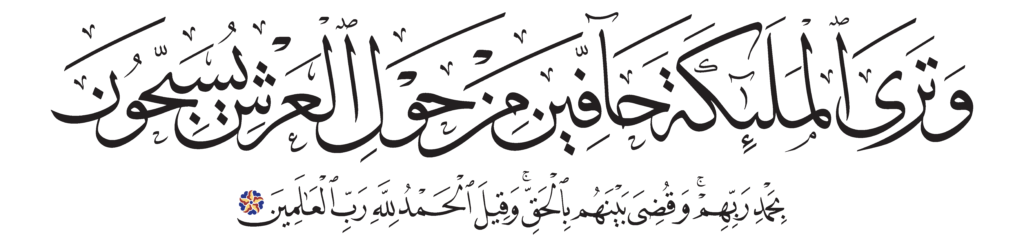 وَتَرَى ٱلْمَلَـٰٓئِكَةَ حَآفِّينَ مِنْ حَوْلِ ٱلْعَرْشِ يُسَبِّحُونَ
بِحَمْدِ رَبِّهِمْ ۚ وَقُضِىَ بَيْنَهُم بِٱلْحَقِّ ۚ وَقِيلَ ٱلْحَمْدُ لِلَّهِ رَبِّ ٱلْعَـٰلَمِينَ